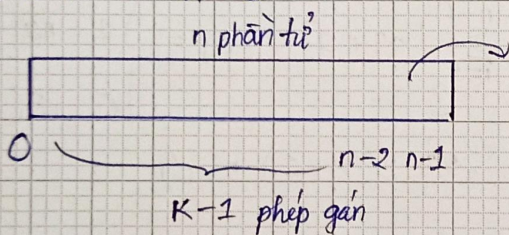 n phần tử
0 n-2 n-1
K-1 phép gán